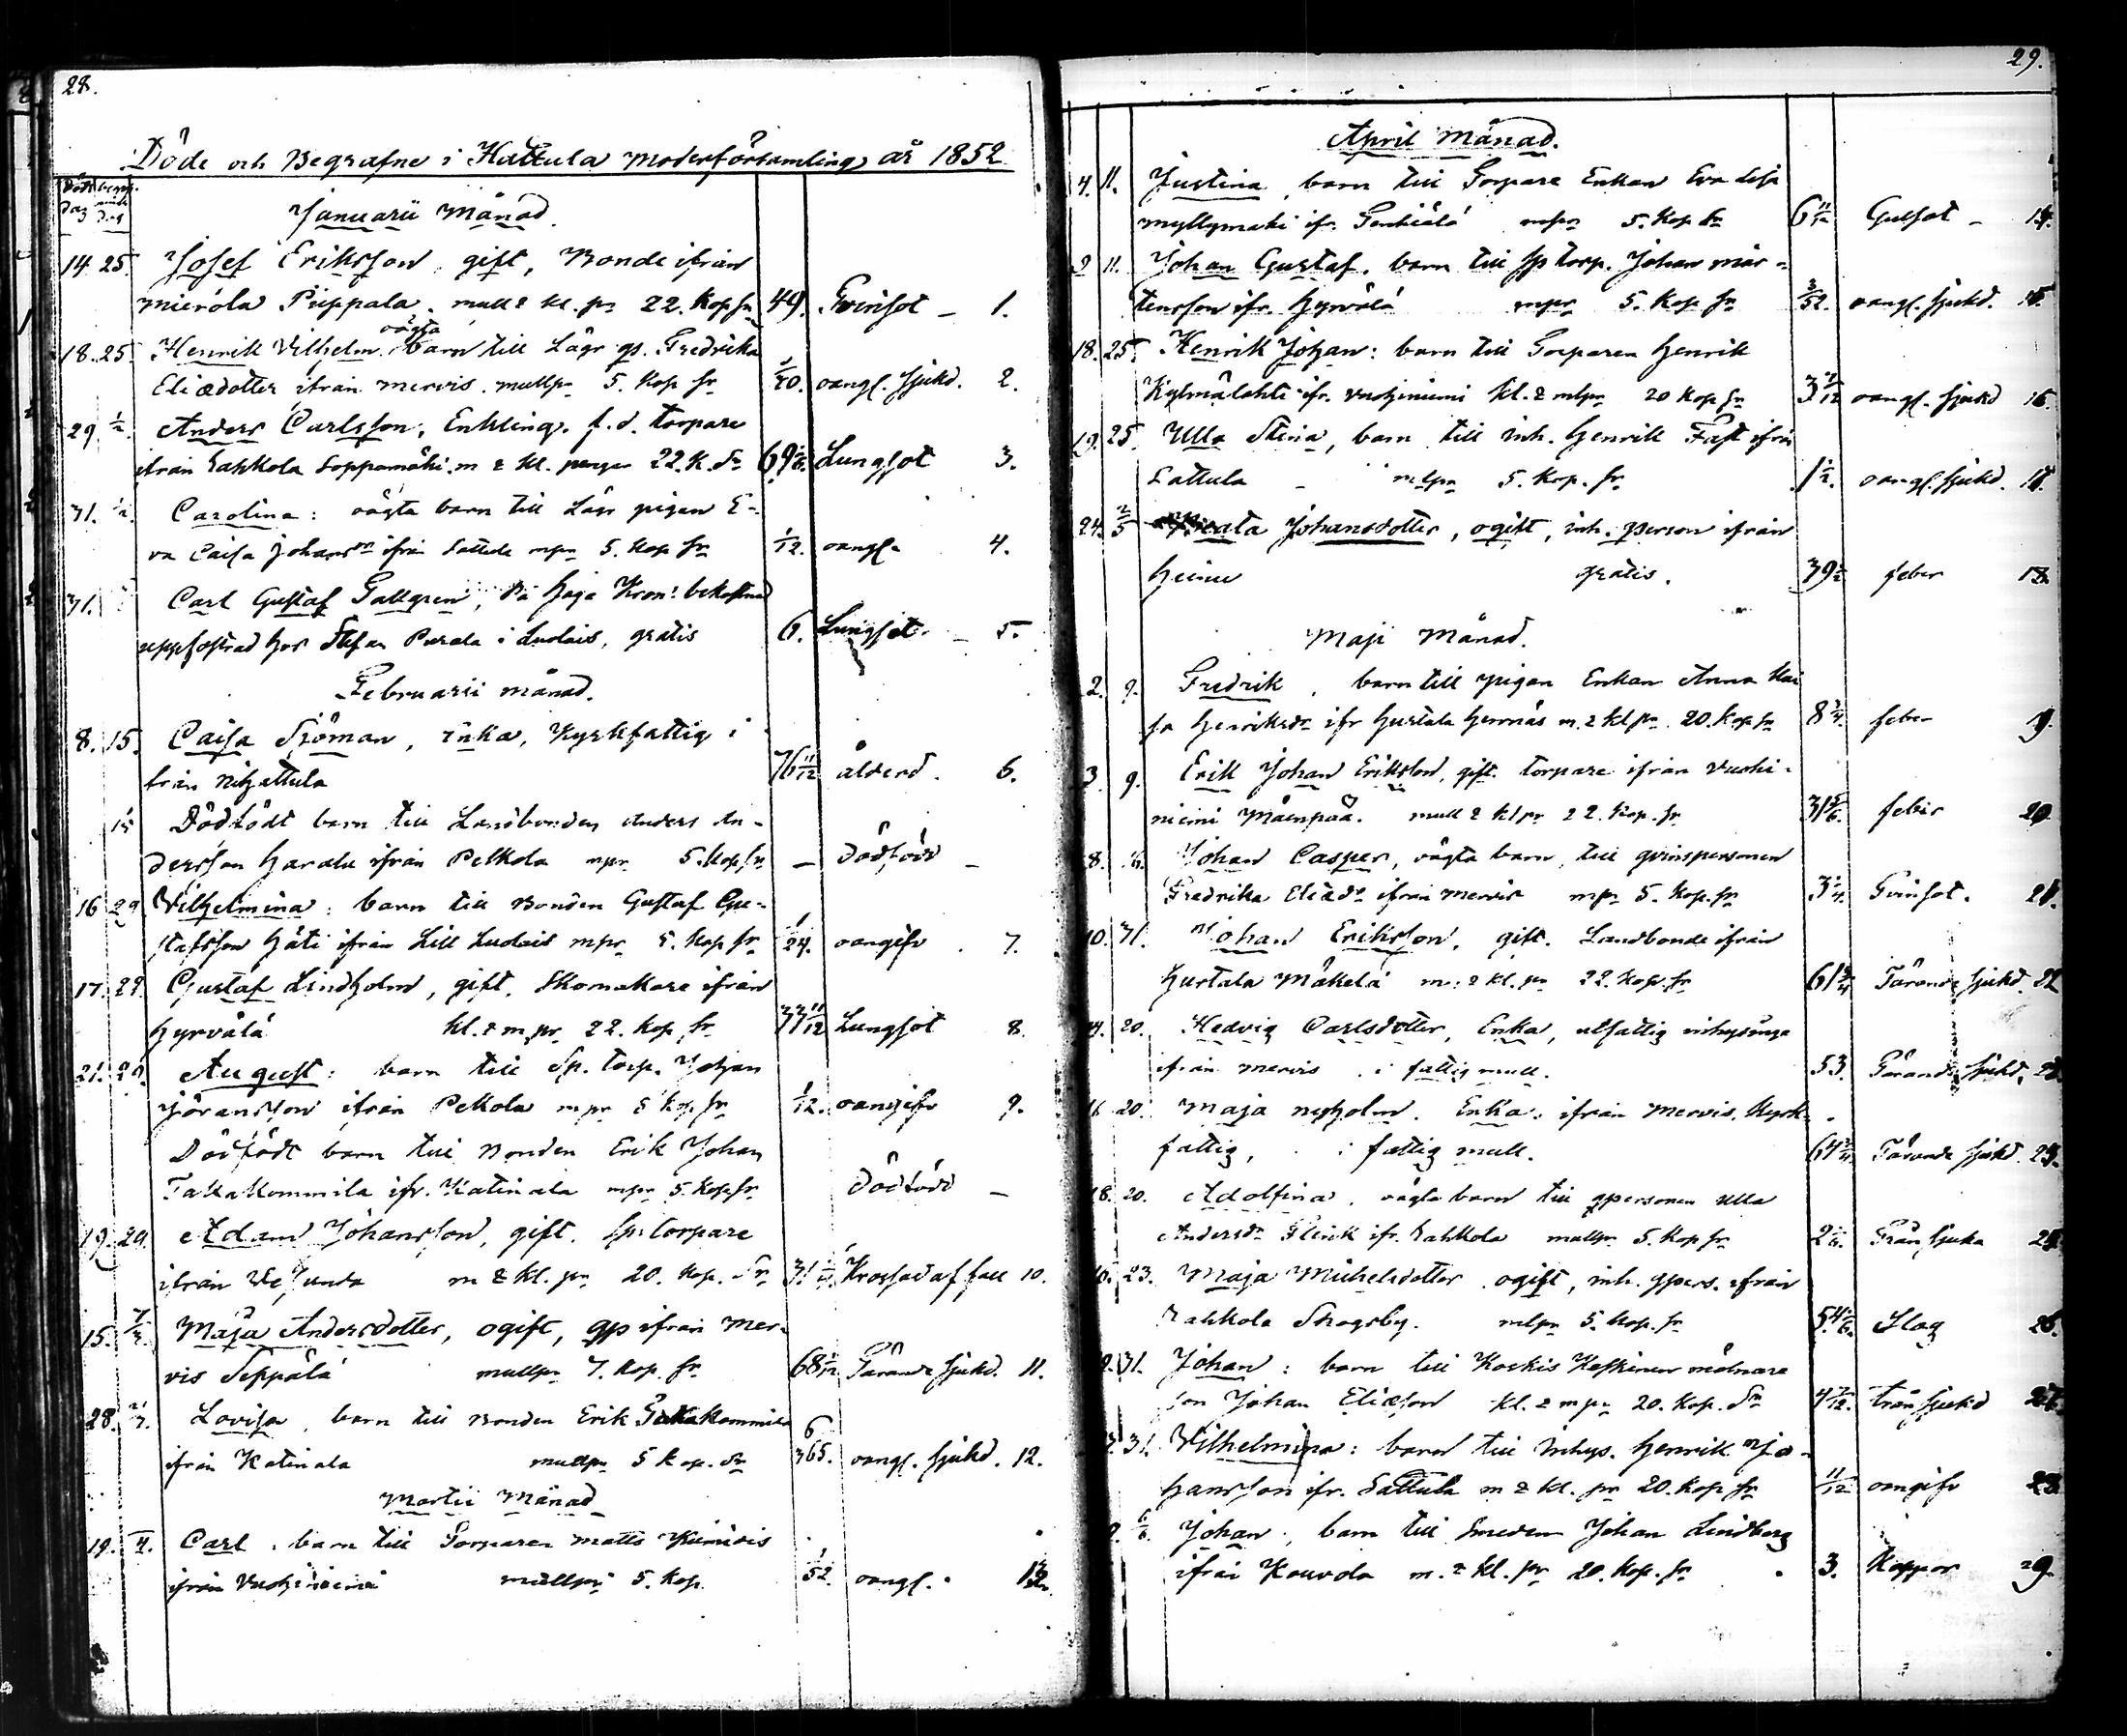 28.
Döde och Begrafne i Hattula Moderförsamling år 1852
Död begr.
Dag Dag
Januarii Månad.
14. 25. Josef Eriksson, gift, Bonde ifrån
Mierola Pieppala. mull & kl. pr 22. Kop Sr 49. Tvinsot – 1.
18. 25. Henrik Vilhelm oägta barn till Lägr qp. Fredrika
Eliædotter ifrån Mervis. mullpr 5. Kop Sr oangf. sjukd. 2.
29. Anders Carlsson, Enkling, f.d. torpare
ifrån m & kl. 22. K. Sr 69 Lungsot 3.
31. Carolina: oägta barn till Lägr pigan E-
va Caisa Johansdr ifrån Sattula mpr 5. Kop Sr 1/12. oangf. 4.
31. Carl Gustaf på Höga Kron: bekostnad
uppfostrad hos Stefan i Ludois, gratis 6. Lungsot. – 5.
Februarii månad.
8. 15. Caisa Sjöman, Enka, Kyrkfattig i
från Nihattula 76 11/12 ålderd. 6.
15 Dödfödt barn till Landbonden Anders An-
dersson Harala ifrån Pelkola mpr 5. Kop Sr – dödfödd –
16 29 Vilhelmina: barn till Bonden Gustaf Gu-
stafsson Häti ifrån Lill Ludois mpr 5. Kop Sr 1/24. oangifv. 7.
17. 29. Gustaf Lindholm, gift, Skomakare ifrån
Hyrvälä kl. & m. pr 22. Kop. Sr 77 11/12 Lungsot 8.
21. 29. August: barn till Sp. torp. Johan
Jöransson ifrån Pelkola mpr 5 Kop. Sr 1/12. oangifv 9.
Dödfödt barn till Bonden Erik Johan
Takakommila ifr. Katinala mpr 5. Kop Sr Dödfödd –
19. 29. Adam Johansson, gift, Sp: torpare
ifrån m & kl. pr 20. Kop. Sr 31 Krossad af fall 10.
15. 7/3. Maja Andersdotter, ogift, qp ifrån Mer-
vis Seppälä mullpr 7. Kop. Sr 68 Tärande sjukd. 11.
28. Lovisa, barn till Bonden Erik Takakommila
ifrån Katinala mullpr 5 Kop. Sr 6/365. oangf. sjukd. 12.
Martii Månad
19. Carl, barn till Torparen Matts
ifrån Vuohiniemi mullpr 5. Kop. 1/52. oangf. 13.
29.
April Månad.
4. 11. Justina, barn till Torpare Enkan Eva Lisa
Myllymäki ifr. mpr 5. Kop Sr 6 Gulsot – 14.
9 11. Johan Gustaf, barn till Sp torp. Johan Mår-
tensson ifr. Hyrvälä mpr 5. Kop Sr 3/52. oangf. sjukd. 15.
18. 25. Henrik Johan: barn till Torparen Henrik
Kylmälahti ifr. Vuohiniemi kl. & mlpr 20 Kop Sr 3 7/12 oangf. sjukd 16.
19. 25 Ulla Stina, barn till inh. Henrik Fast ifrån
Sattula – mlpr 5. Kop. Sr 1 1/2. oangf. sjukd. 17.
24. 2/5 Johansdotter, ogift, inh. person ifrån
Heinu gratis. 39 feber 18.
Maji Månad.
2. 9. Fredrik, barn till pigan Enkan Anna Kai
sa Henriksdr ifr Hurtala Hennäs m. & kl pr 20. Kop Sr 8 3/4. feber 19.
3. 9. Erik Johan Eriksson, gift, torpare ifrån Vuohi-
niemi Mäenpää. mull & kl pr 22. Kop. Sr 31 5/6. feber 20.
8. Johan Casper, oägta barn, till qvinspersonen
Fredrika Eliædr ifrån Mervis mpr 5. Kop. Sr 3 Tvinsot. 21.
10. 31. Johan Eriksson, gift. Landbonde ifrån
Hurtala Mäkelä m: & kl. pr 22. Kop. Sr 61 3/4 Tärande sjukd. 22
14. 20. Hedvig Carlsdotter, Enka, utfattig inhysinge
ifrån Mervis i fattig mull. 53. Tärande sjukd. 23.
16 20. Maja Nyholm. Enka: ifrån Mervis. Kyrk-
fattig, i fattig mull. 64 Tärande sjukd. 24.
18. 20. Adolfina, oägta barn till qpersonen Ulla
Andersdr Flink ifr. mullpr 5. Kop Sr 2 Trånsjuka 25.
16. 23. Maja Michelsdotter ogift, inh. qpers. ifrån
Skogsby. mlpr 5. Kop. Sr 54 Slag 26.
31. Johan: barn till Koskis Koskinen mölnare
son Johan Eliæson kl. & mpr 20. Kop. Sr 4 trånsjukd 27.
31. Vilhelmina: barn till Inhys. Henrik Jo-
hansson ifr. Sattula m & kl. pr 20. Kop Sr 11/12 oangifv 28
Johan, barn till Smeden Johan Lindberg
ifrån Kouvola m. & kl. pr 20. Kop. Sr 3. Koppor 29.